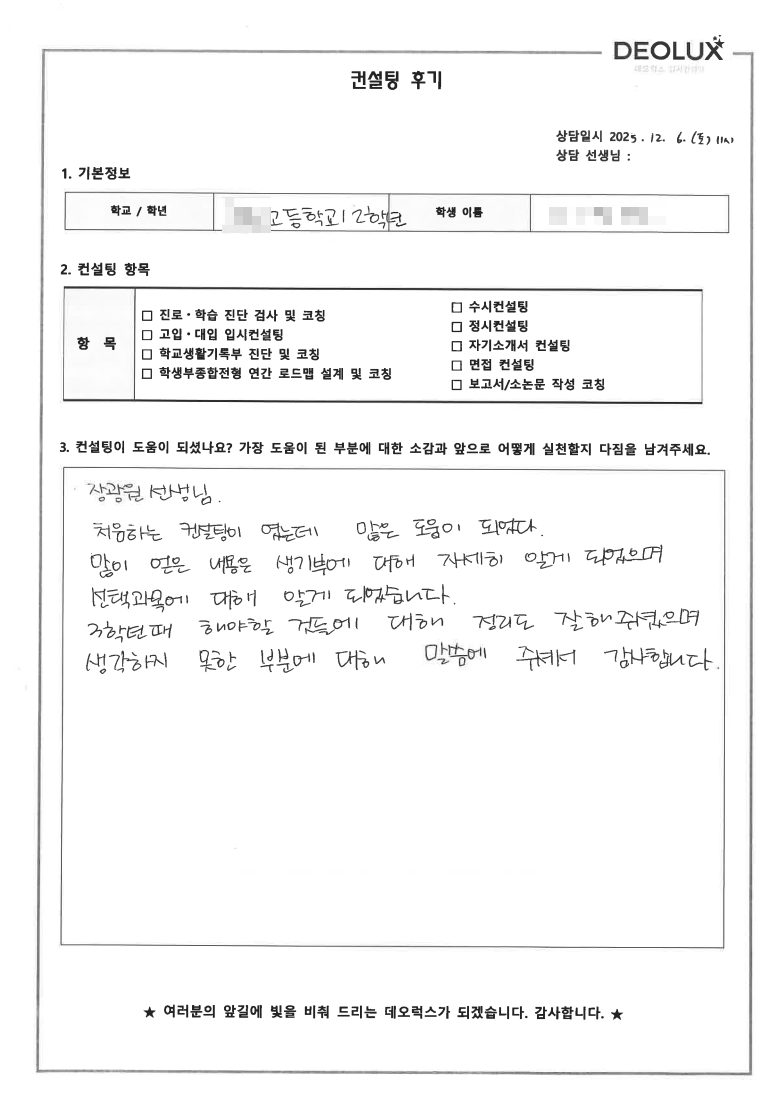 DEOLUX
컨설팅 후기
상담일시 2025. 12. 6. (토) 11시
상담 선생님 :
1. 기본정보
학교 / 학년 고등학교 / 2학년 학생 이름
2. 컨설팅 항목
항 목
□ 진로·학습 진단 검사 및 코칭
□ 고입·대입 입시컨설팅
□ 학교생활기록부 진단 및 코칭
□ 학생부종합전형 연간 로드맵 설계 및 코칭
□ 수시컨설팅
□ 정시컨설팅
□ 자기소개서 컨설팅
□ 면접 컨설팅
□ 보고서/소논문 작성 코칭
3. 컨설팅이 도움이 되셨나요? 가장 도움이 된 부분에 대한 소감과 앞으로 어떻게 실천할지 다짐을 남겨주세요.
장광원 선생님.
처음하는 컨설팅이 였는데 많은 도움이 되었다.
많이 얻은 내용은 생기부에 대해 자세히 알게 되었으며
선택과목에 대해 알게 되었습니다.
3학년때 해야할 것들에 대해 정리도 잘해주셨으며
생각하지 못한 부분에 대해 말씀에 주셔서 감사합니다.
★ 여러분의 앞길에 빛을 비춰 드리는 데오럭스가 되겠습니다. 감사합니다. ★